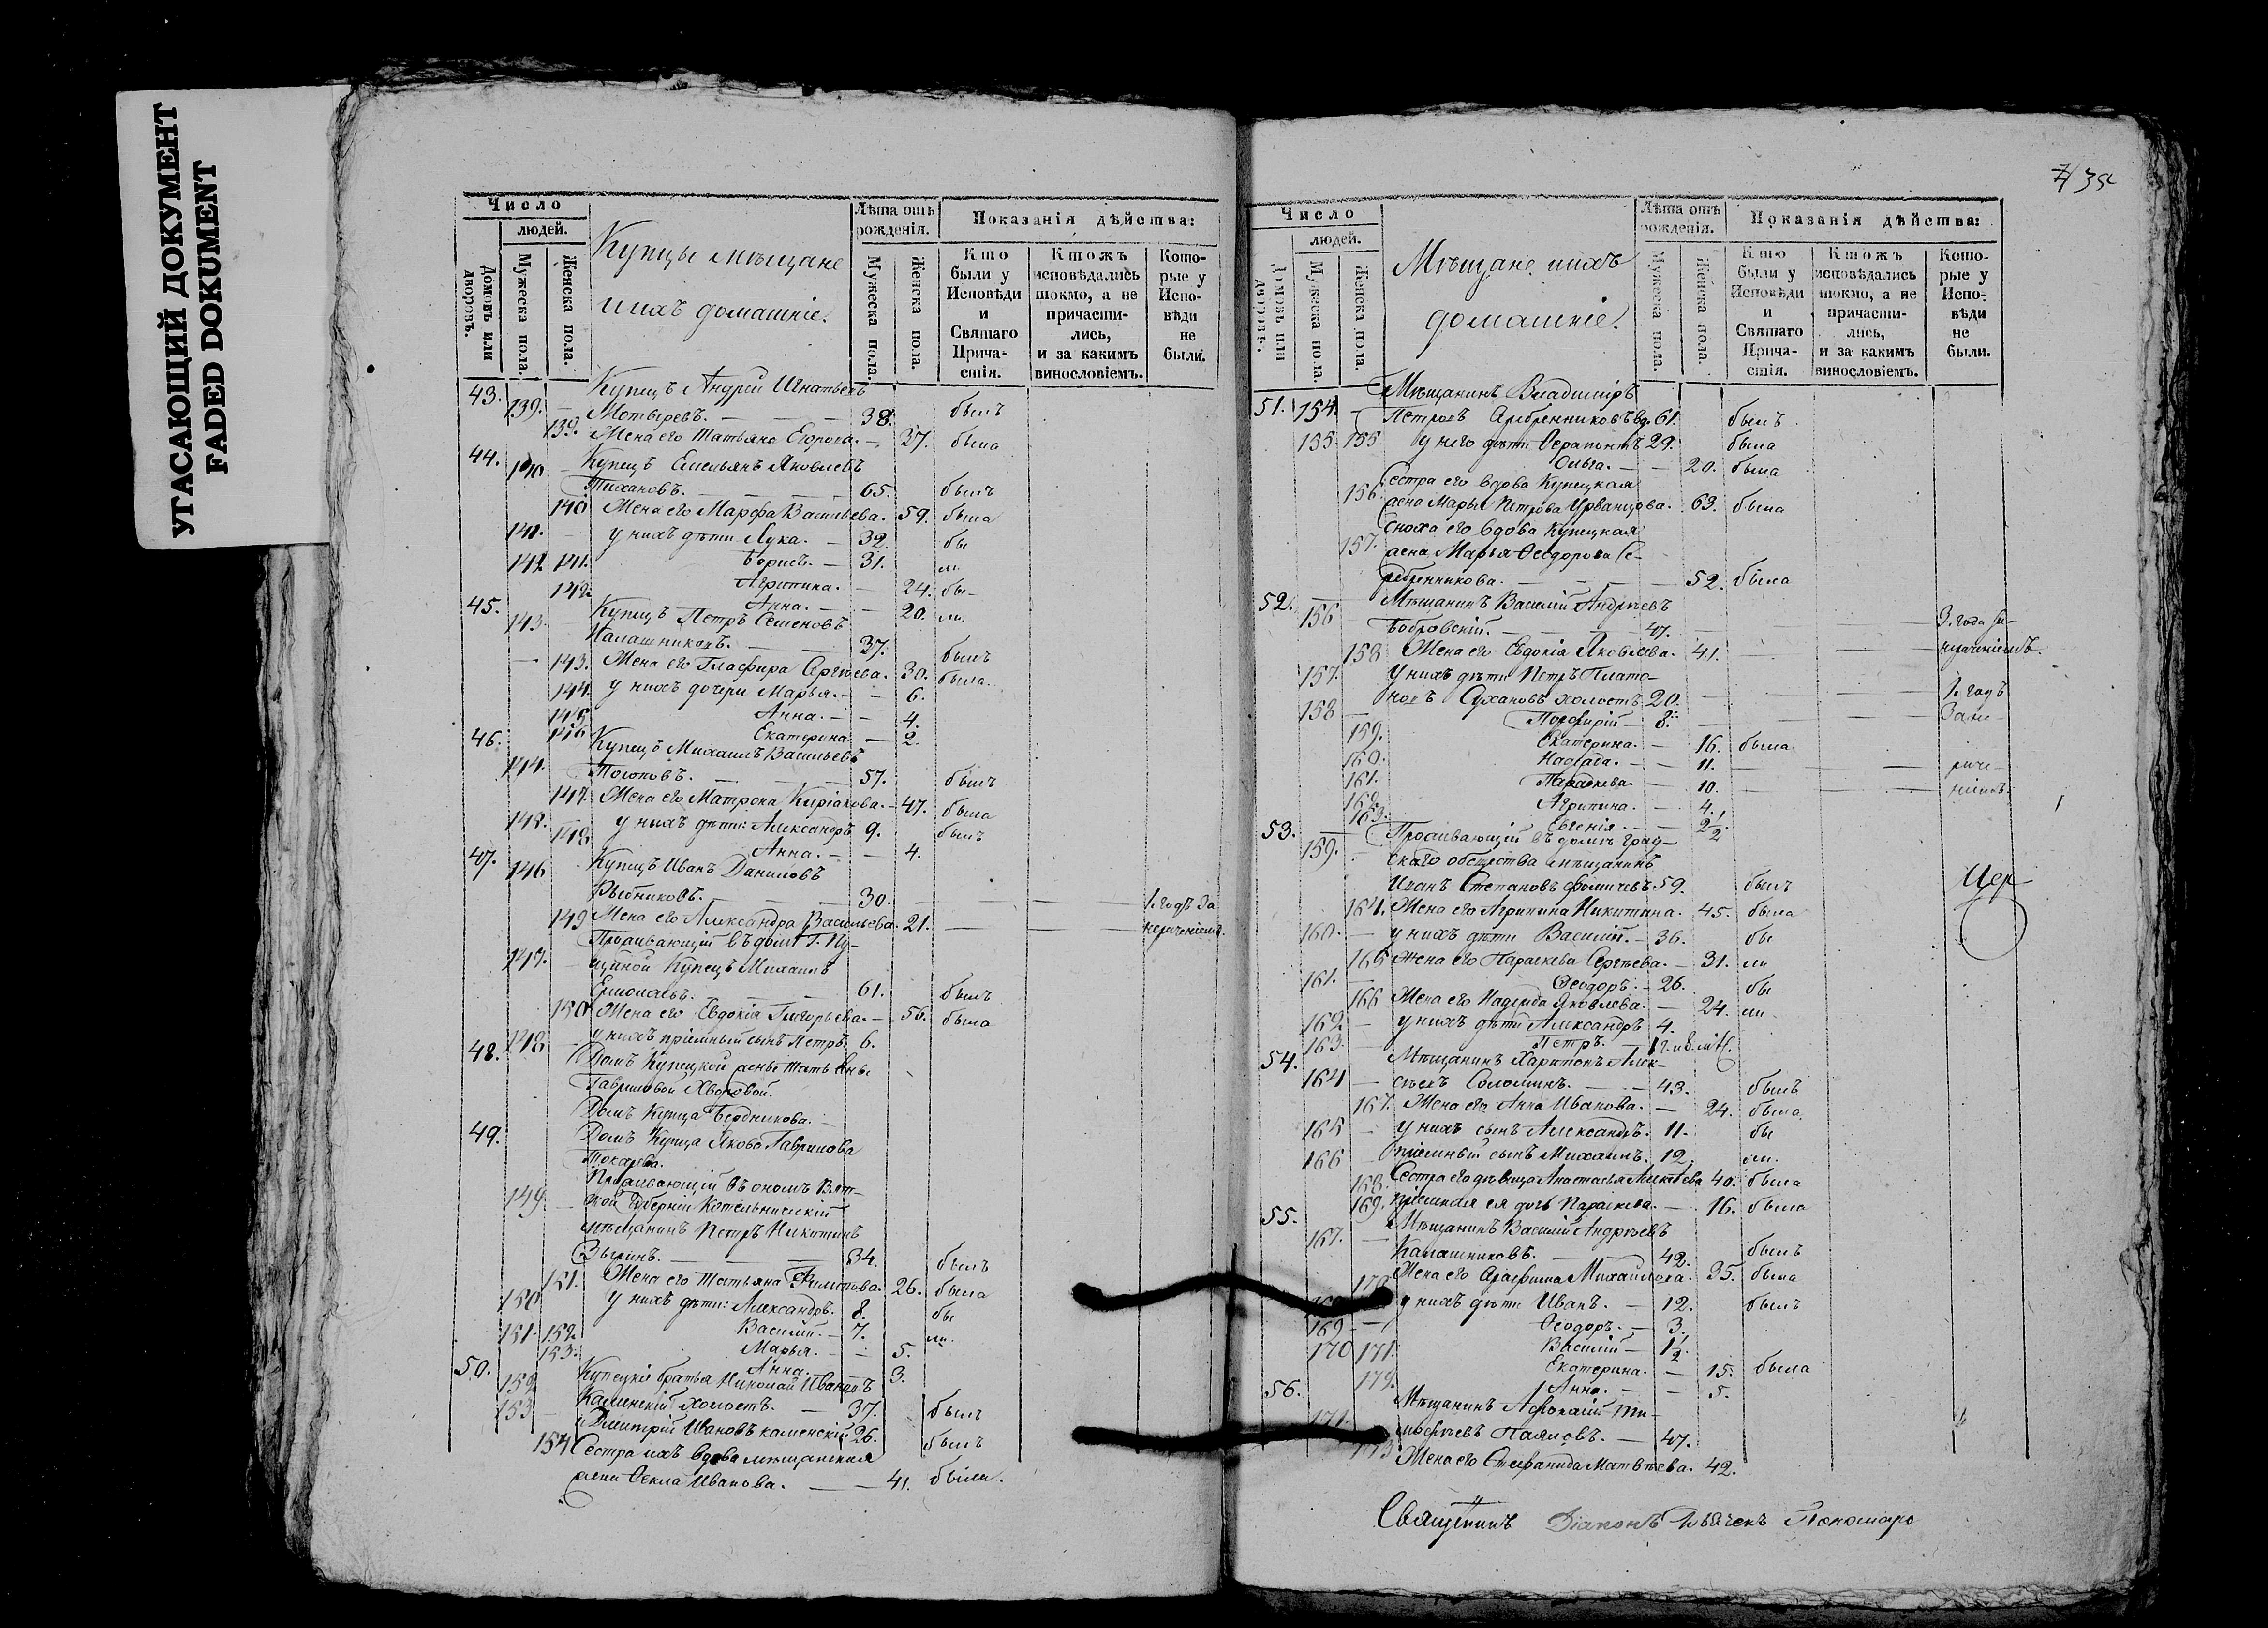 УГАСАЮЩИЙ ДОКУМЕНТ
FADED DOKUMENT
Число
людей.
Домовъ или дворовъ.
Мужеска пола.
Женска пола.
Купцы мѣщане
и ихъ домашніе.
Лѣта отъ рожденія.
Мужеска пола.
Женска пола.
Показанія дѣйства:
Кто были у Исповѣди и Святаго Прича-стія.
Ктожъ исповѣдались токмо, а не причасти-лись, и за какимъ винословіемъ.
Кото-рые у Испо-вѣди не были.
43. 139. — Купецъ Андрей Игнатьевъ
Мотыревъ. — 38. былъ
139. Жена его Татьяна Егорова. — 37. была
44. 140 — Купецъ Емельянъ Яковлевъ
Тихановъ. — 65. былъ
140 Жена его Марфа Васильева. 59. была
141. — у нихъ дѣти Лука. — 32. бы
142 141. Борисъ. — 31. ли.
142. Агрипина. — 24. бы-
Анна. — 20. ли.
45. 143. Купецъ Петръ Семеновъ
Калашниковъ. — 37. былъ
143. Жена его Глафира Сергѣева. 30. была.
144. у нихъ дочери Марья. — 6.
145 Анна. — 4.
146 Екатерина — 2.
46. 144. Купецъ Михаилъ Васильевъ
— 57. былъ
147. Жена его Матрона Киріакова. — 47. была
148. у нихъ дѣти: Александръ 9. былъ
148 Анна. — 4.
47. 146 Купецъ Иванъ Даниловъ
Рыбниковъ. — 30. — — 1. годъ за
149 Жена его Александра Васильева. 21. — — нераченіемъ.
Проживающій въ домѣ Г.
147. Купецъ Михаилъ
Ермолаевъ. — 61. былъ
150 Жена его Евдокія Григорьева. — 56. была
148 у нихъ пріемный сынъ Петръ. 6.
48. Домъ Купецкой жены Татьяны
Гавриловой Хворовой.
Домъ Купца Бердникова. —
49. Домъ Купца Якова Гаврилова
Токарева.
Проживающій въ ономъ Вят-
149. ской Губерніи Котельническій
мѣщанинъ Петръ Никитинъ
Зыринъ. — 34. былъ
151. Жена его Татьяна Филипова. 26. была
150 у нихъ дѣти: Александръ. 8. бы
151. 152. Василій. — 7. ли.
153. Марья. — 5.
Анна. — 3.
50. 152 Купецкіе братья Николай Ивановъ
Каменскій холостъ. — 37. былъ
153 Дмитрій Ивановъ Каменскій 26. былъ
154 Сестра ихъ вдова мѣщанская
жена Фекла Иванова. — 41. была.
7/35
Число
людей.
Домовъ или дворовъ.
Мужеска пола.
Женска пола.
Мѣщане и ихъ
домашніе.
Лѣта отъ рожденія.
Мужеска пола.
Женска пола.
Показанія дѣйства:
Кто были у Исповѣди и Святаго Прича-стія.
Ктожъ исповѣдались токмо, а не причасти-лись, и за какимъ винословіемъ.
Кото-рые у Испо-вѣди не были.
51. 154. — Мѣщанинъ Владиміръ
Петровъ Серебренниковъ вд. 61. былъ
155 155 у него дѣти Ферапонтъ 29. была
Ольга. — 20. была
Сестра его вдова Купецкая
156 жена Марья Петрова Урванцова. 63. была
Сноха его вдова Купецкая
157. жена Марья Феодорова Се-
ребренникова. — 52. была
52. 156 Мѣщанинъ Василій Андреевъ
Бобровскій. — 47. — — 3. года за
158 Жена его Евдокія Яковлева. 41. — — нераченіемъ.
157. У нихъ дѣти Петръ Плато-
новъ Сухановъ холостъ 20. — — 1. годъ
158 Порфирій — 8. — — За не-
159. Екатерина. — 16. была
160. Надежда. — 11. — — раче-
161. Параскева — 10. — — ніемъ.
162 Агрипина. — 4.
163. Евгенія. — 2 1/2.
53. 159. Проживающій въ домѣ град-
скаго общества мѣщанинъ
Иванъ Степановъ Фомичевъ 59. былъ
164. Жена его Агрипина Никитина. 45. была
160. — у нихъ дѣти Василій. — 36. бы
165 Жена его Параскева Сергѣева. — 31. ли
161. — Феодоръ. — 26. бы
166 Жена его Надежда Яковлева. — 24. ли
162. — у нихъ дѣти Александръ 4.
163. Петръ. —
54. 164 — Мѣщанинъ Харитонъ Алек-
сѣевъ Соломинъ. — 43. былъ
167. Жена его Анна Иванова. — 24. была
165 — у нихъ сынъ Александръ. 11. бы
166 пріемный сынъ Михаилъ. 12 ли.
168. Сестра его дѣвица Анастасья 40. была
169. пріемная ея дочь Параскева. — 16. была
55. 167. — Мѣщанинъ Василій Андреевъ
Калашниковъ. — 42. былъ
170 Жена его Серафима Михайлова. 35. была
168 у нихъ дѣти Иванъ. — 12. былъ
169 — Феодоръ. — 3.
170 171 Василій — 1 1/2.
Екатерина. — 15. была
172. Анна. — 5.
56. 171. Мѣщанинъ Ти-
мофѣевъ — 47.
173 Жена его Стефанида Матвѣева. 42.
Цер
Священникъ Діаконъ Дьячекъ Пономарь